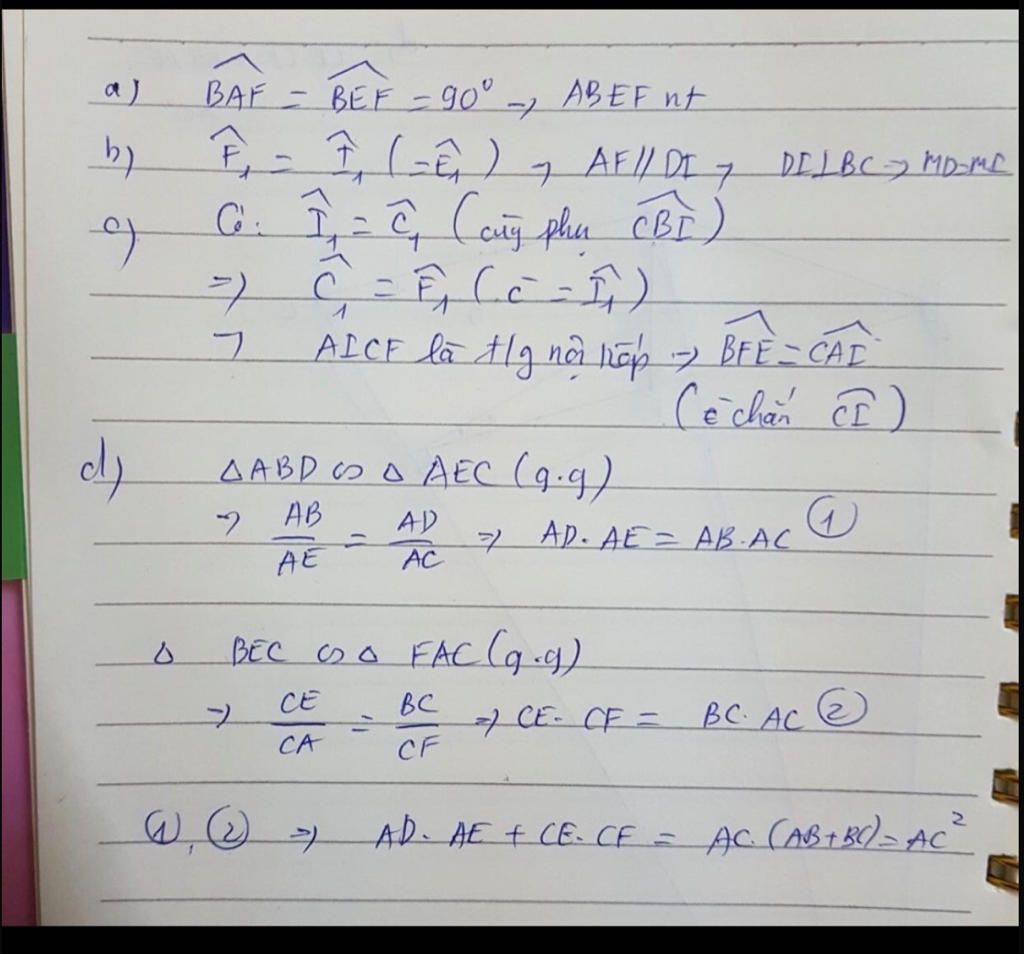 a) BAF = BEF = 90° → ABEF nt
b) F̂₁ = Î₁ (= Ê₁) → AF // DI → DI ⊥ BC → MD=MI
c) Có: Î₁ = Ĉ₁ (cùg phụ CBI)
=> Ĉ₁ = F̂₁ (c = Î₁)
→ AICF là t/g nội tiếp → BFE = CAI
(c chắn CI)
d) △ABD ∽ △ AEC (g.g)
→ AB/AE = AD/AC => AD. AE = AB. AC ①
△ BEC ∽ △ FAC (g.g)
→ CE/CA = BC/CF => CE. CF = BC. AC ②
①, ② => AD. AE + CE. CF = AC. (AB+BC) = AC²